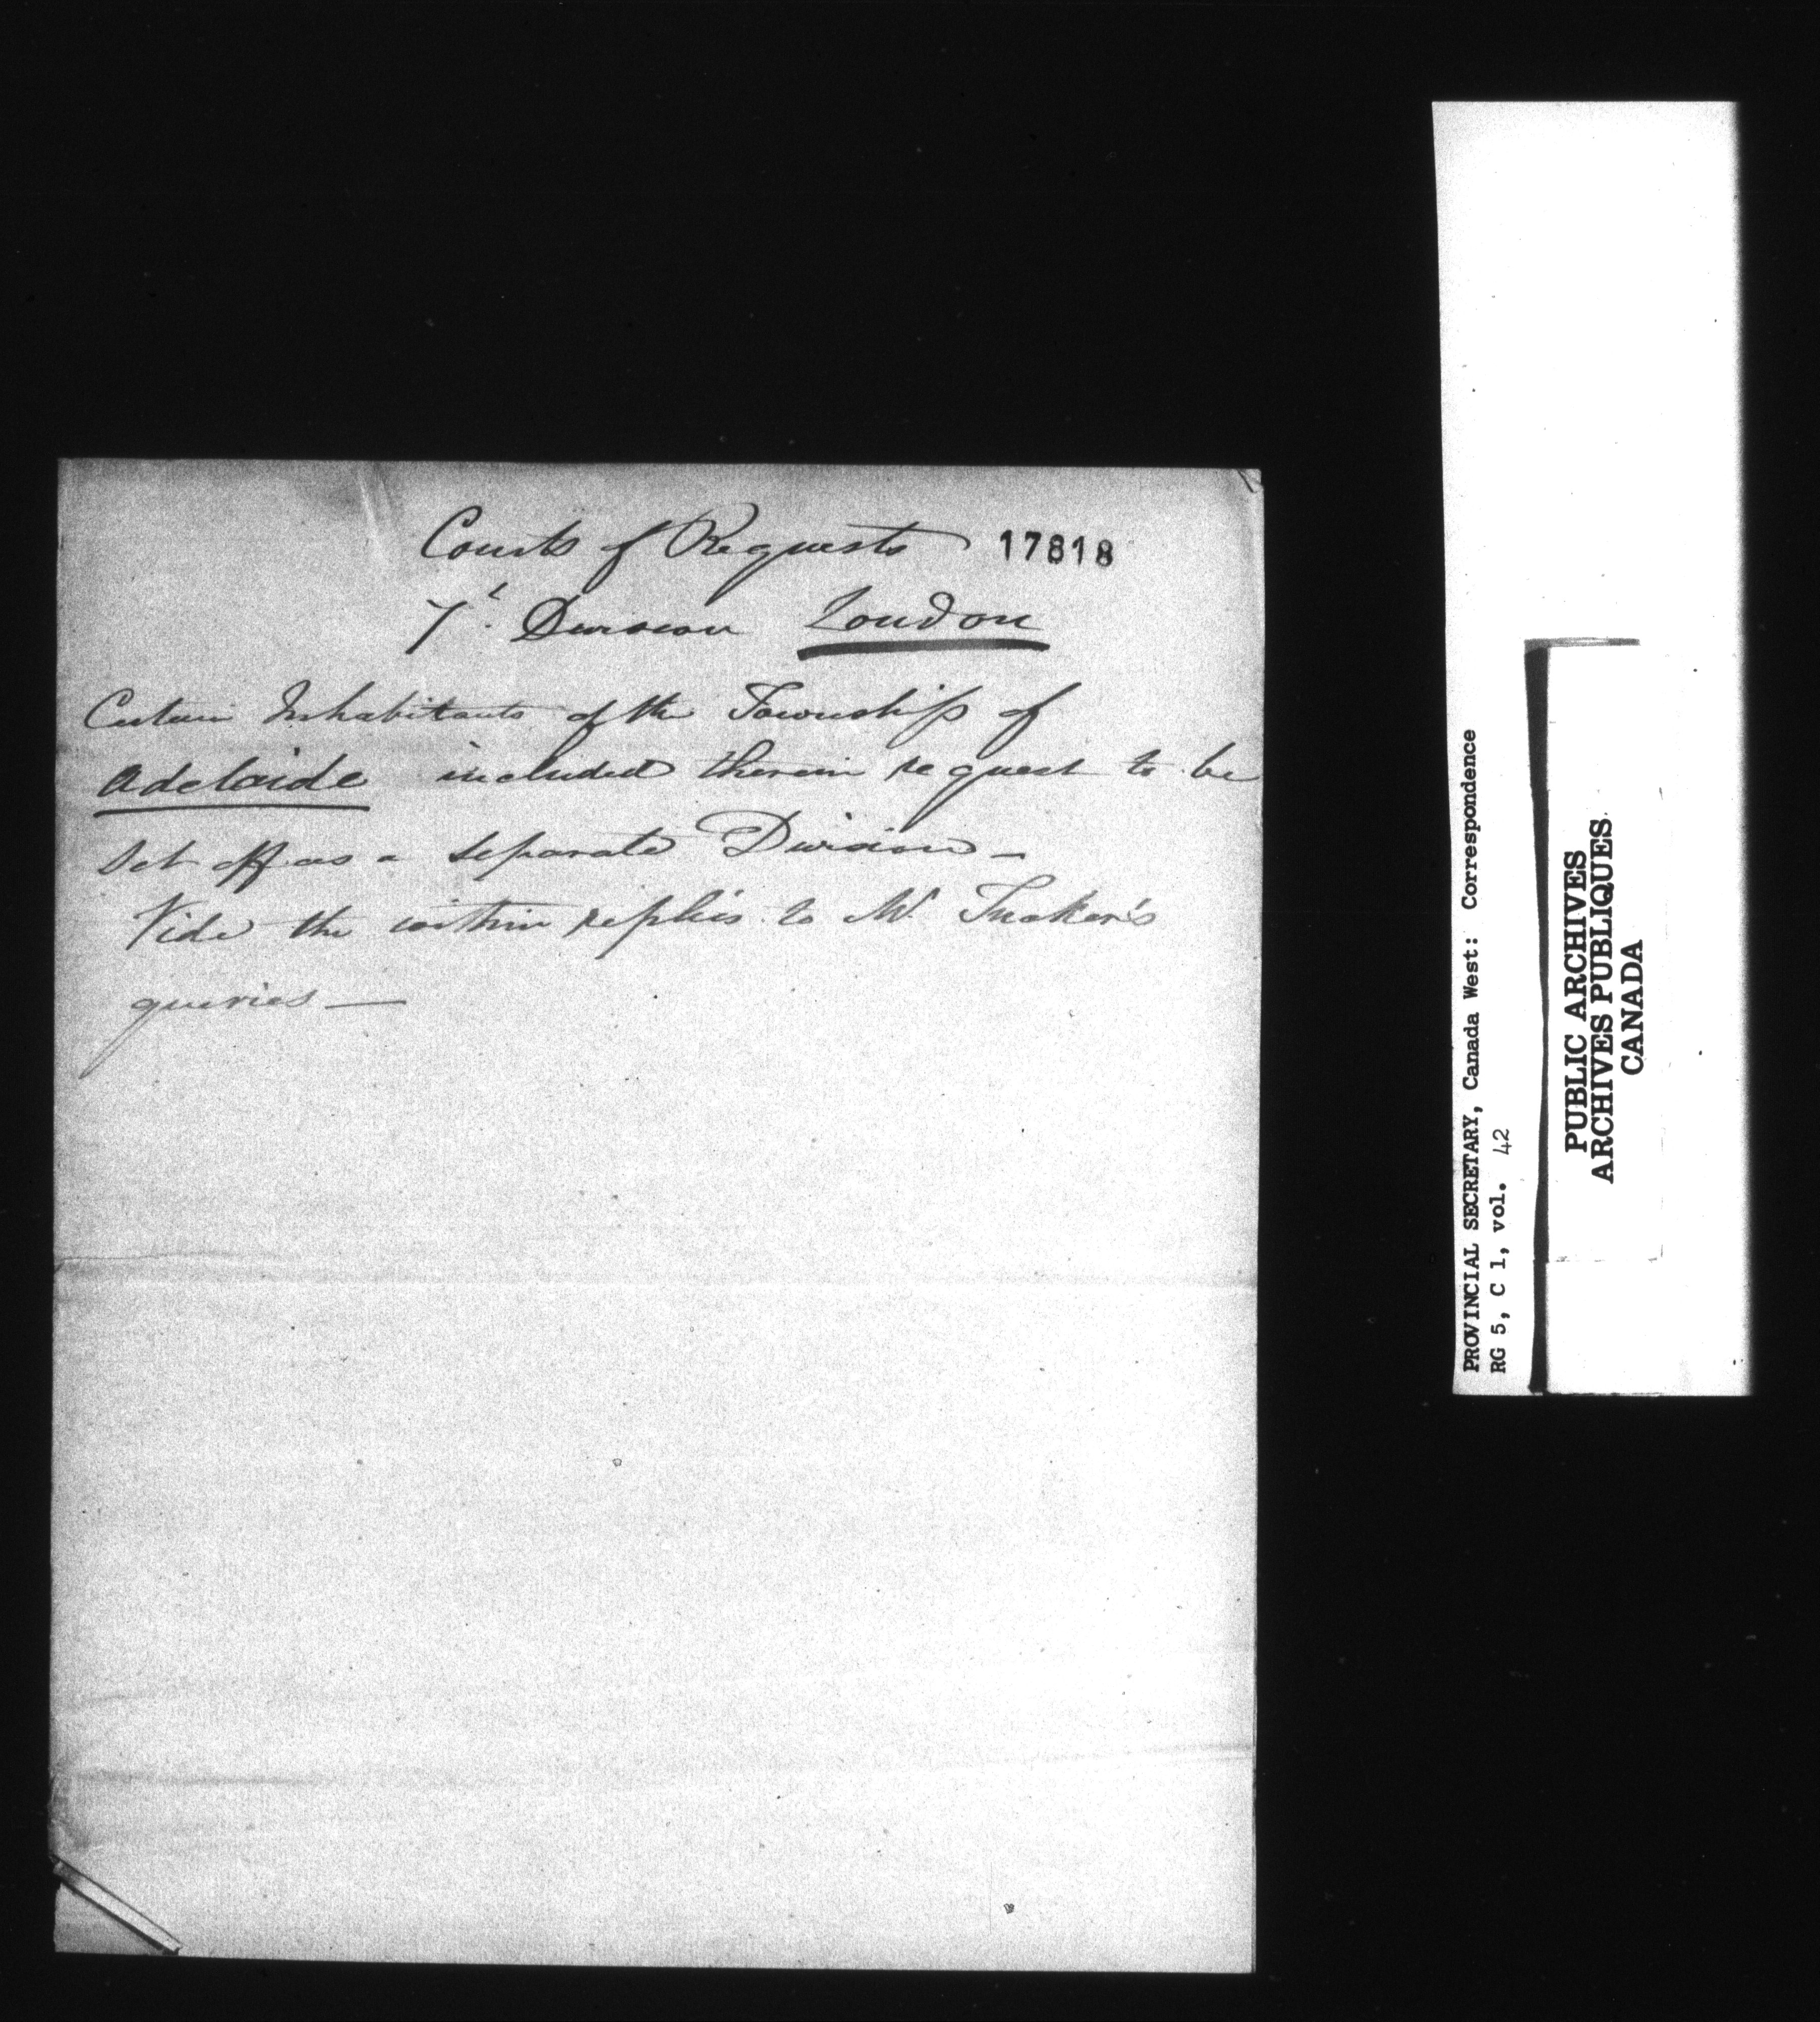 Courts of Requests 17818
7t. Division London
Certain Inhabitants of the Township of
Adelaide included therein request to be
set off as a separate Division —
Vide the within replies to Mr. Tucker's
queries —
PROVINCIAL SECRETARY, Canada West: Correspondence
RG 5, C 1, vol. 42
PUBLIC ARCHIVES
ARCHIVES PUBLIQUES
CANADA